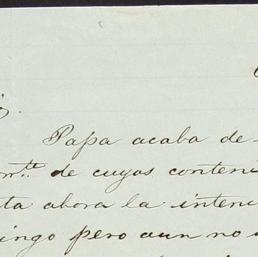 Papa acaba de
mte de cuyos conteni
ta ahora la intenc
ingo pero aun no